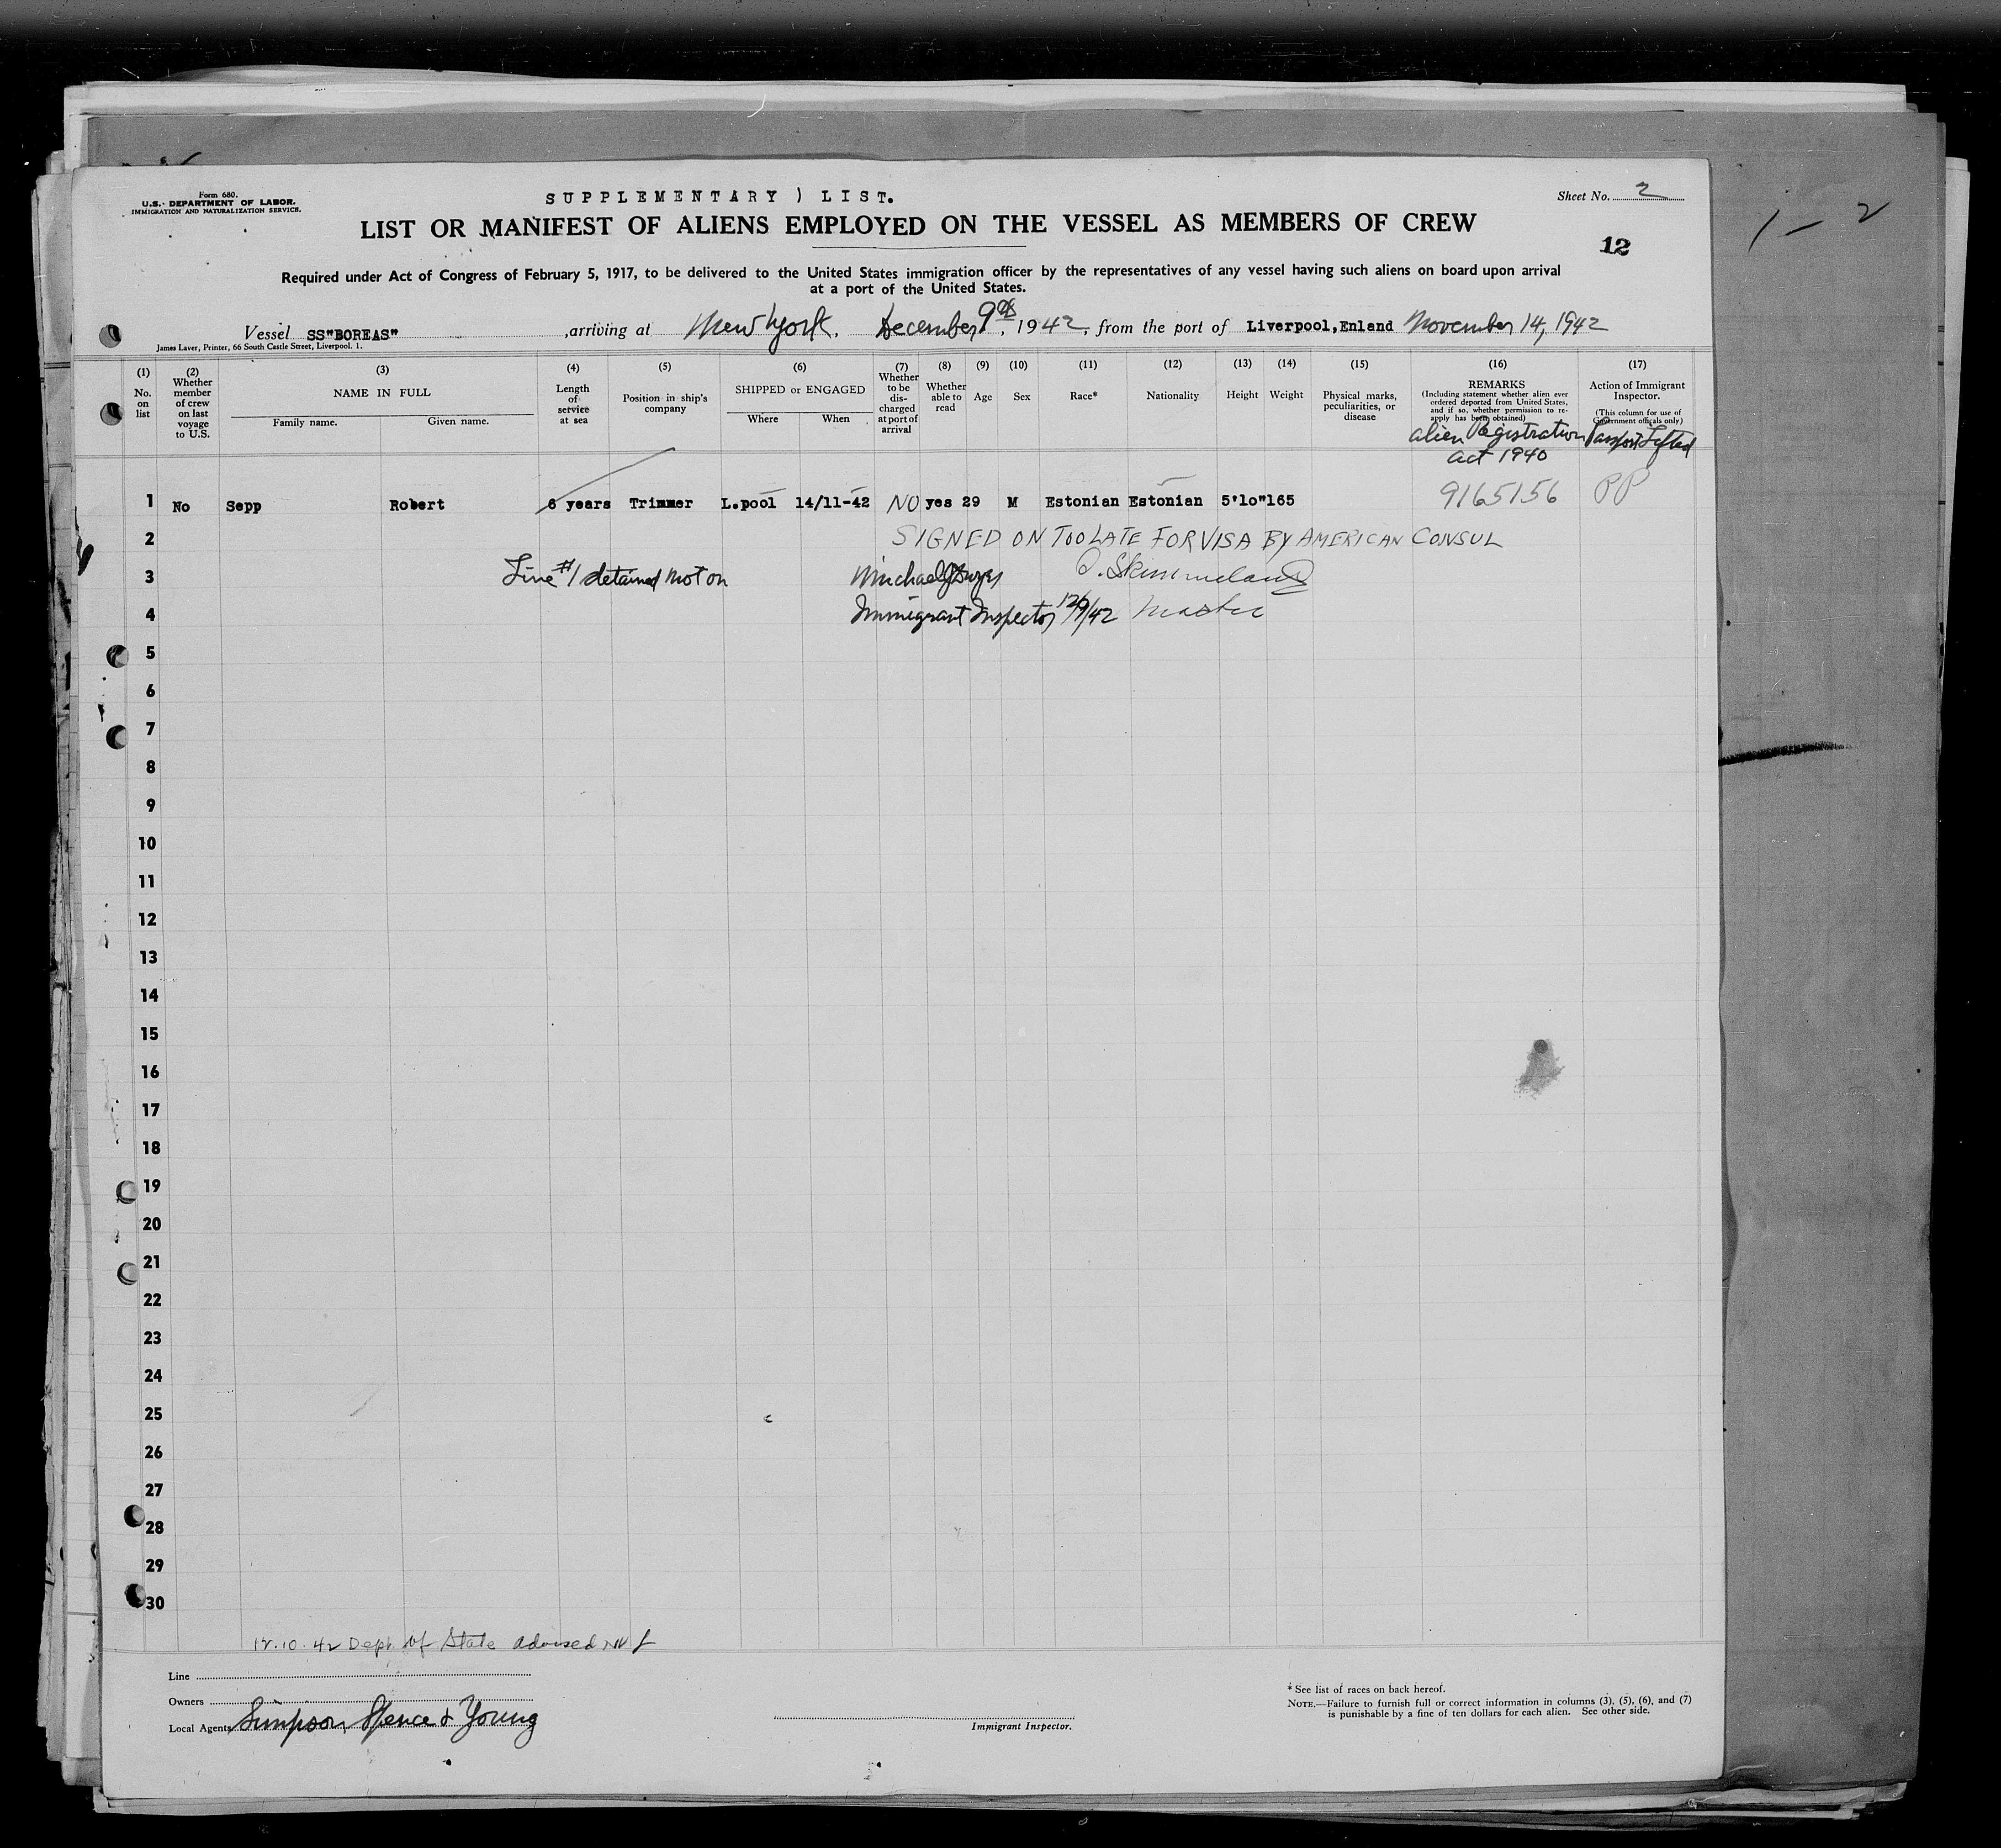 Form 680.
U.S. DEPARTMENT OF LABOR.
IMMIGRATION AND NATURALIZATION SERVICE.
SUPPLEMENTARY ) LIST.
Sheet No. 2
LIST OR MANIFEST OF ALIENS EMPLOYED ON THE VESSEL AS MEMBERS OF CREW
1 - 2
12
Required under Act of Congress of February 5, 1917, to be delivered to the United States immigration officer by the representatives of any vessel having such aliens on board upon arrival
at a port of the United States.
Vessel SS"BOREAS" , arriving at New York, December 9th, 1942, from the port of Liverpool,Enland November 14, 1942
James Laver, Printer, 66 South Castle Street, Liverpool. 1.
(1) No. on list
(2) Whether member of crew on last voyage to U.S.
(3) NAME IN FULL
Family name. Given name.
(4) Length of service at sea
(5) Position in ship's company
(6) SHIPPED or ENGAGED
Where When
(7) Whether to be discharged at port of arrival
(8) Whether able to read
(9) Age
(10) Sex
(11) Race*
(12) Nationality
(13) Height
(14) Weight
(15) Physical marks, peculiarities, or disease
(16) REMARKS
(Including statement whether alien ever ordered deported from United States, and if so, whether permission to re-apply has been obtained)
Alien Registration
Act 1940
(17) Action of Immigrant Inspector.
(This column for use of Government officals only)
Passport Lifted
1 No Sepp Robert 6 years Trimmer L.pool 14/11-42 NO yes 29 M Estonian Estonian 5'10" 165 9165156 PP
2 SIGNED ON TOO LATE FOR VISA BY AMERICAN CONSUL
3 Line #1 detained not on Michael
4 Immigrant Inspector 12/9/42 Master
5
6
7
8
9
10
11
12
13
14
15
16
17
18
19
20
21
22
23
24
25
26
27
28
29
30
12.10.42 Dept. of State advised
Line
Owners
Local Agents Simpson, Spence & Young
Immigrant Inspector.
* See list of races on back hereof.
NOTE.—Failure to furnish full or correct information in columns (3), (5), (6), and (7)
is punishable by a fine of ten dollars for each alien. See other side.